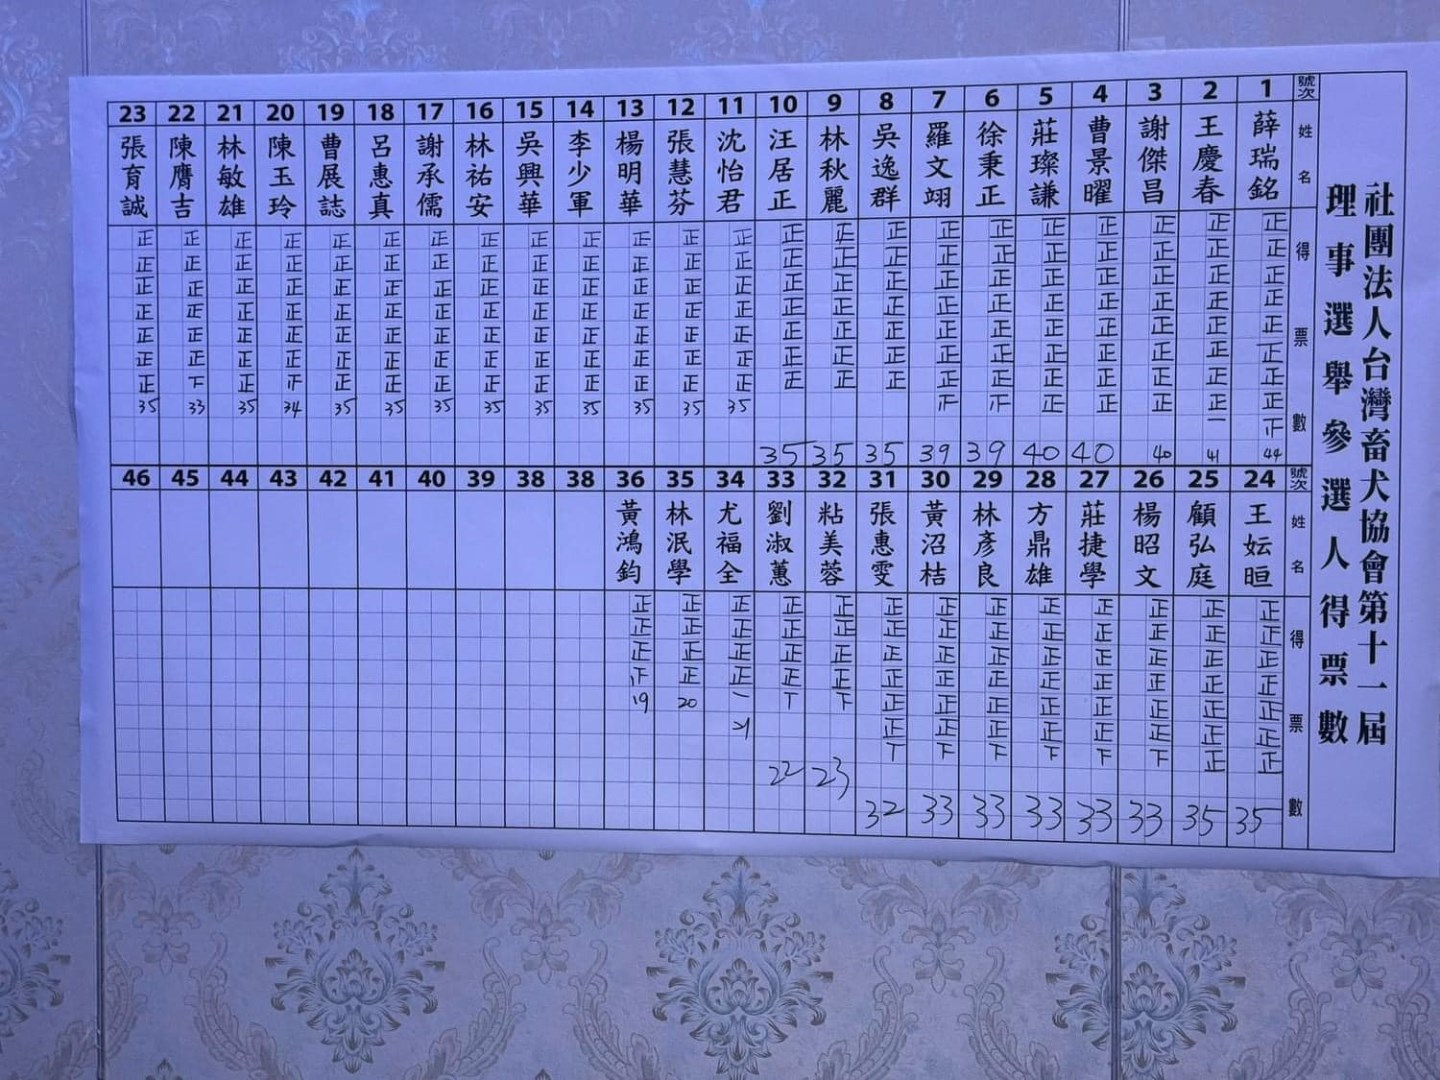 社團法人台灣畜犬協會第十一屆
理事選舉參選人得票數
號次 1 2 3 4 5 6 7 8 9 10 11 12 13 14 15 16 17 18 19 20 21 22 23
姓名 薛瑞銘 王慶春 謝傑昌 曹景曜 莊璨謙 徐秉正 羅文翊 吳逸群 林秋麗 汪居正 沈怡君 張慧芬 楊明華 李少軍 吳興華 林祐安 謝承儒 呂惠真 曹展誌 陳玉玲 林敏雄 陳膺吉 張育誠
得票數 44 41 40 40 40 39 39 35 35 35 35 35 35 35 35 35 35 35 35 34 35 33 35
號次 24 25 26 27 28 29 30 31 32 33 34 35 36 38 38 39 40 41 42 43 44 45 46
姓名 王妘晅 顧弘庭 楊昭文 莊捷學 方鼎雄 林彥良 黃沼桔 張惠雯 粘美蓉 劉淑蕙 尤福全 林泯學 黃鴻鈞
得票數 35 35 33 33 33 33 33 32 23 22 21 20 19